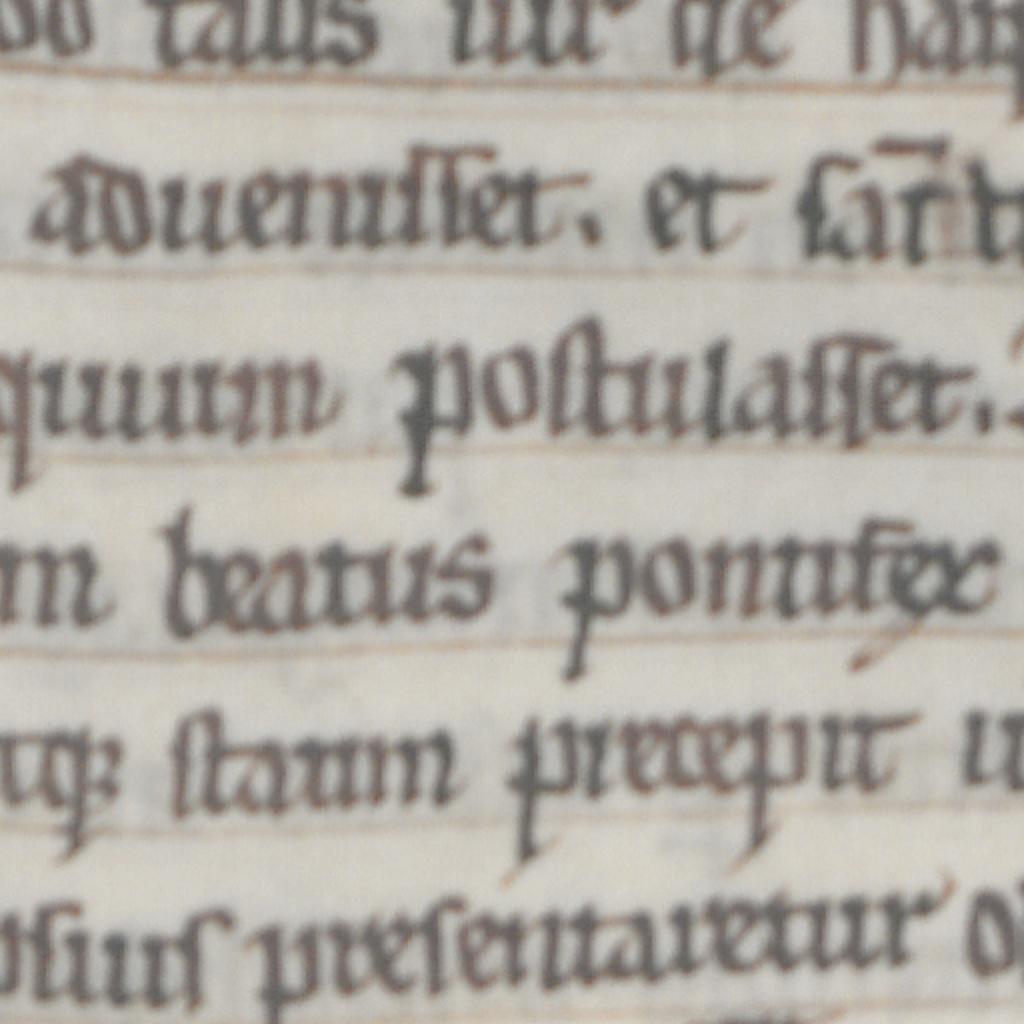 talis uir de
aduenisset. et
quuum postulasset.
beatus pontifex
statim precepit
presentaretur